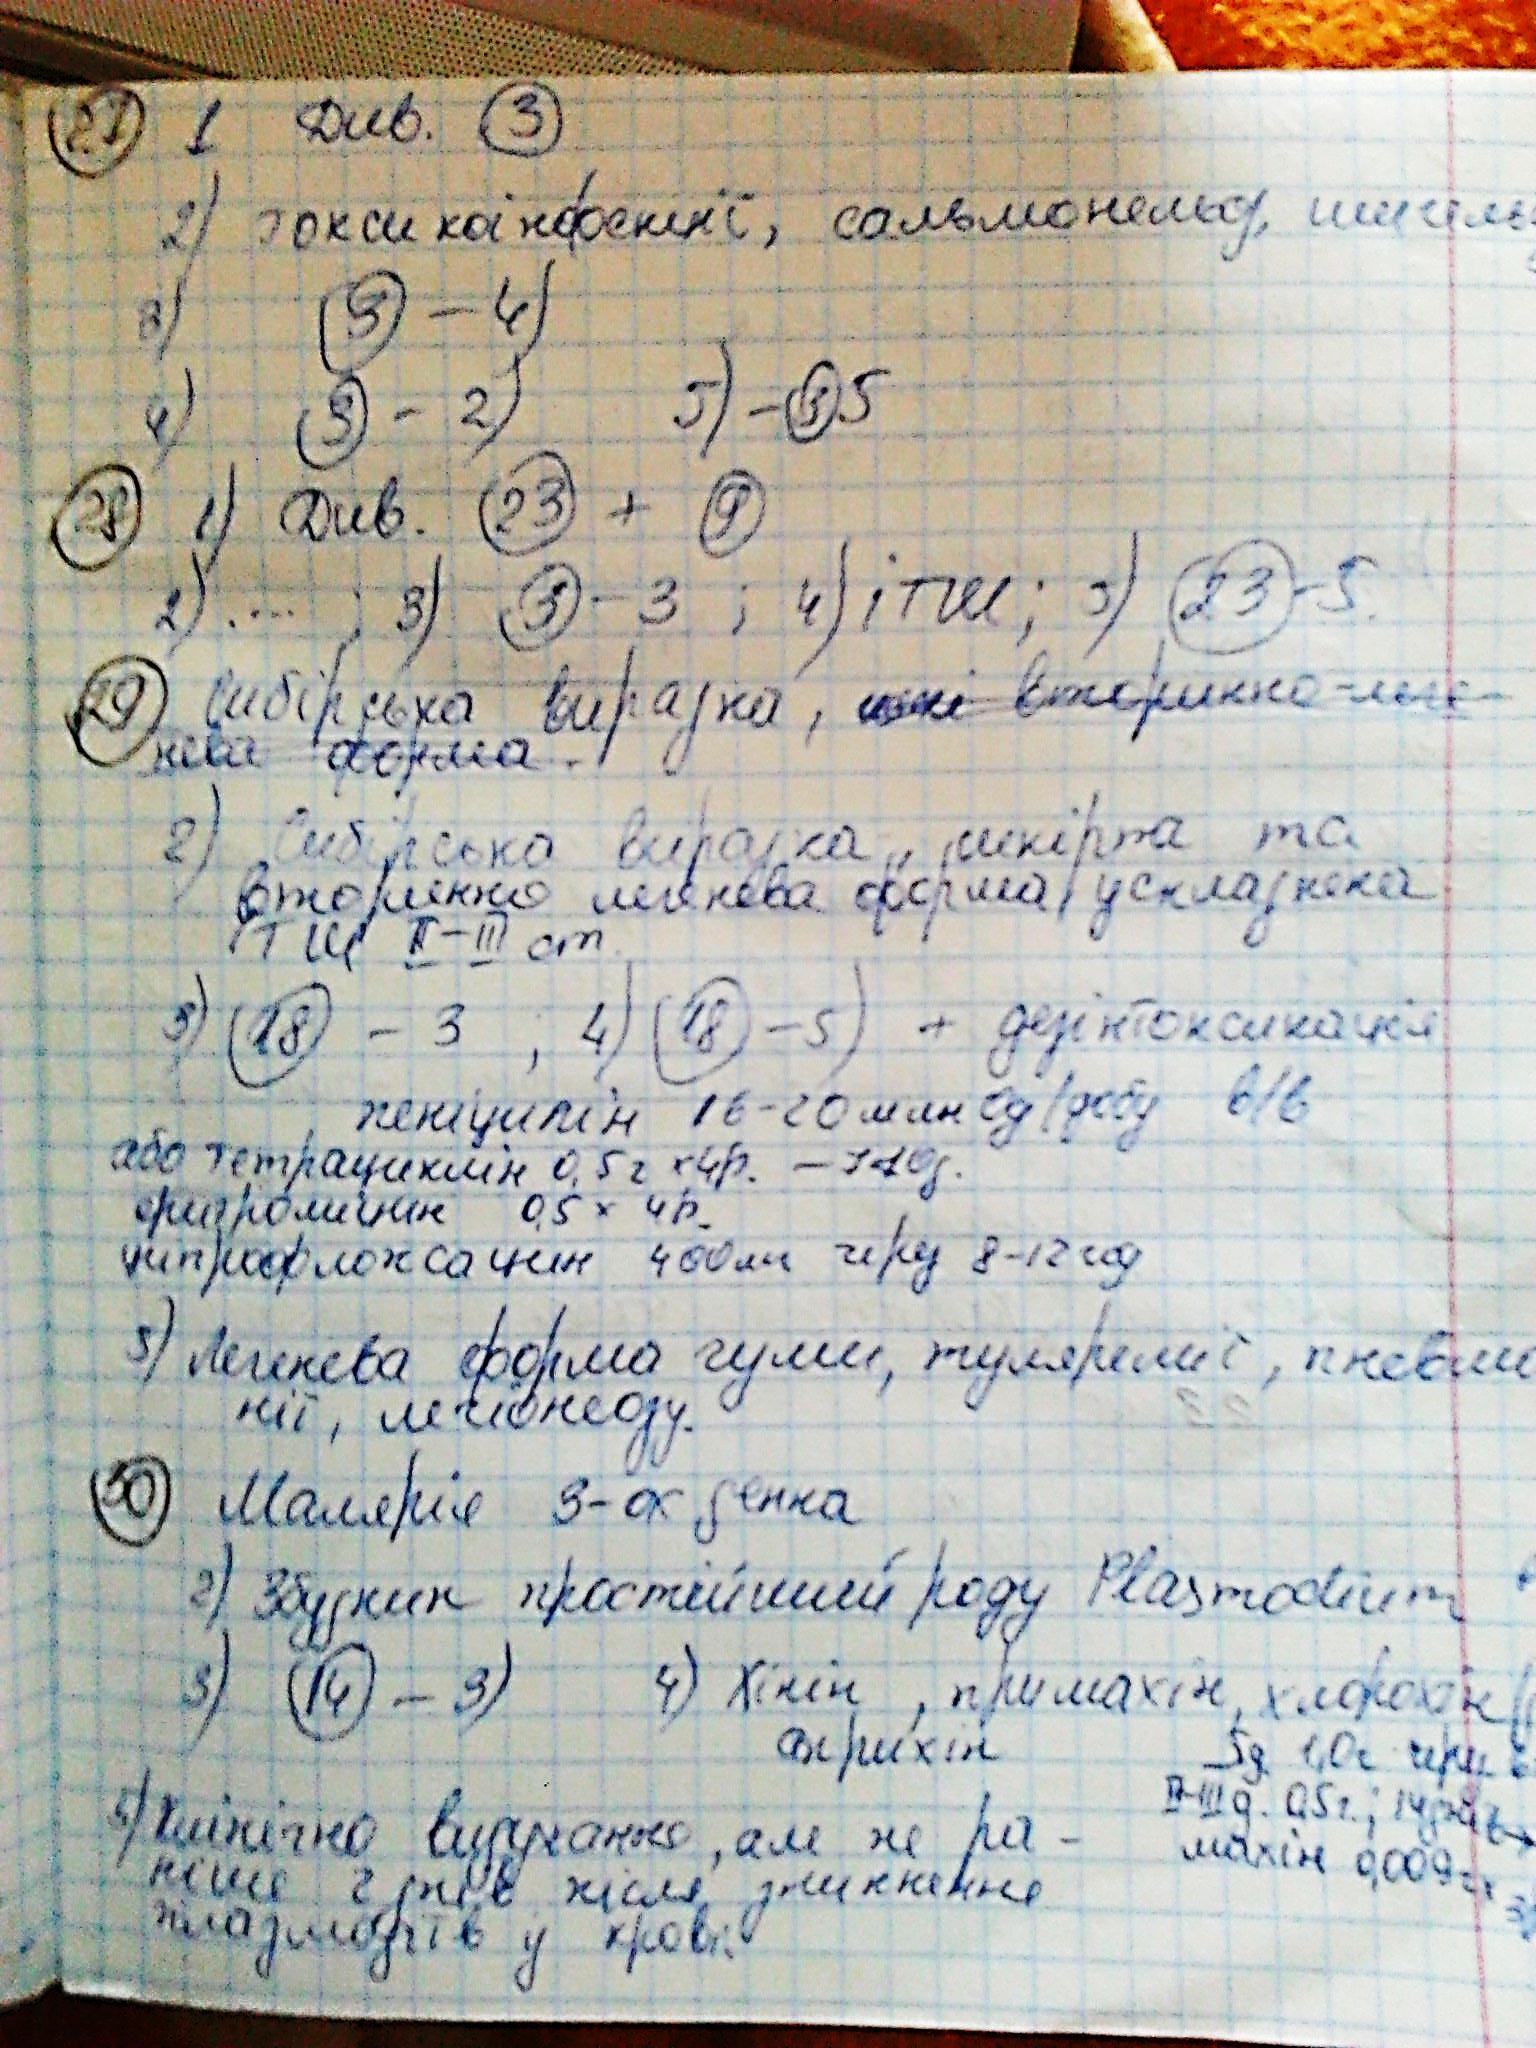 27 1 Див. 3
2) токсикоінфекції, сальмонельоз,
3) 3 - 4)
4) 3 - 2) 5) - 3 5
28 1) Див. 23 + 9
2) .... ; 3) 3 - 3 ; 4) ІТШ; 5) 23 - 5.
29 Сибірська виразка, вторинно-леге-
нева форма.
2) Сибірська виразка, шкірна та
вторинно легенева форма, ускладнена
ІТШ II-III ст.
3) 18 - 3 ; 4) 18 - 5) + дезінтоксикація
пеніцилін 16-20 млн Од/добу в/в
або тетрациклін 0,5 г х 4р.
еритроміцин 0,5 х 4р.
ципрофлоксацин 400мг через 8-12 год
5) Легенева форма чуми, туляремії, пневмо
нії, легіонеозу.
30 Малярія 3-ох денна
2) Збудник простіший роду Plasmodium
3) 14 - 3) 4) Хінін, примахін, хлорохін
акрихін Iд 1,0г через
II-III д. 0,5г.;
махін 0,009г х
5) Клінічно видужання, але не ра-
ніше 2 днів після зникнення
плазмодіїв у крові.